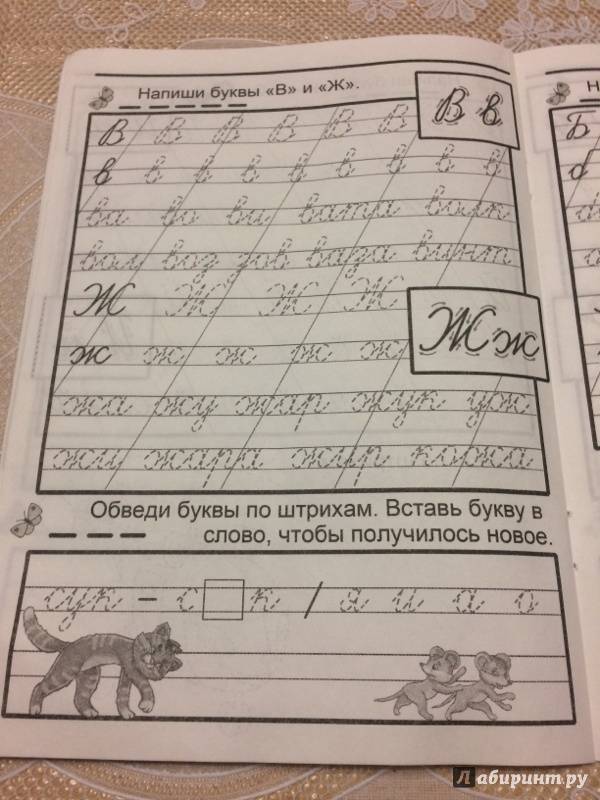 Напиши буквы «В» и «Ж».
В В В В В В В в
в в в в в в в в в
ва во ви вата волк
вол вод зов ваза винт
Ж Ж Ж Ж Ж ж
ж ж ж ж ж
жа жу жар жук уж
жи жара жир кожа
Обведи буквы по штрихам. Вставь букву в
слово, чтобы получилось новое.
сук – с к / я и а о
Н
Б
б
Лабиринт.ру